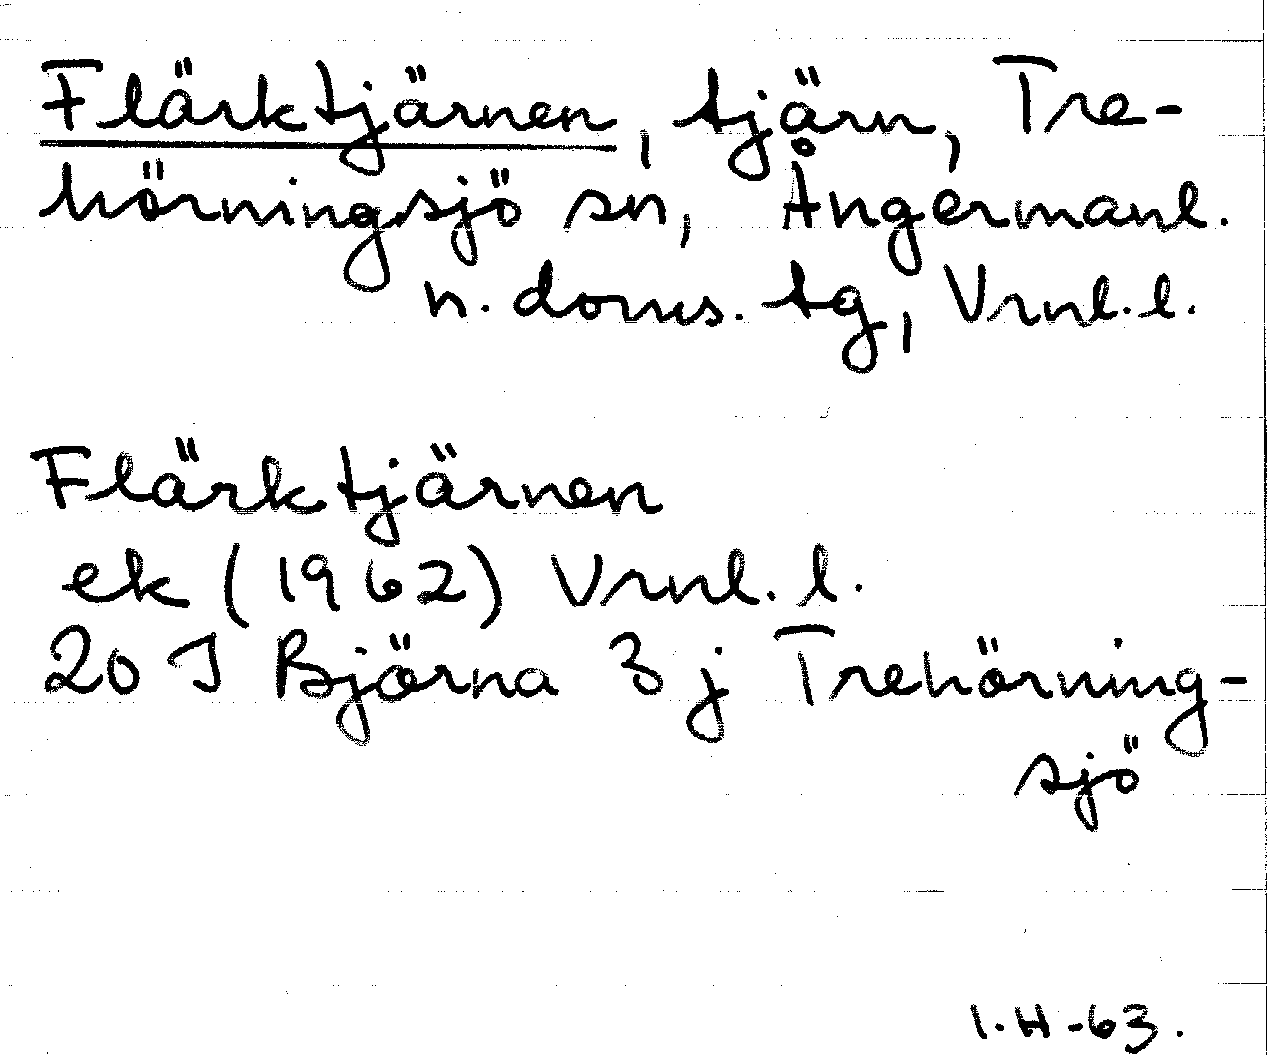 Flärktjärnen, tjärn, Tre-
hörningsjö sn, Ångermanl.
n. doms. tg, Vrnl. l.
Flärktjärnen
ek (1962) Vrnl. l.
20 J Björna 3 j Trehörning-
sjö
I.H-63.